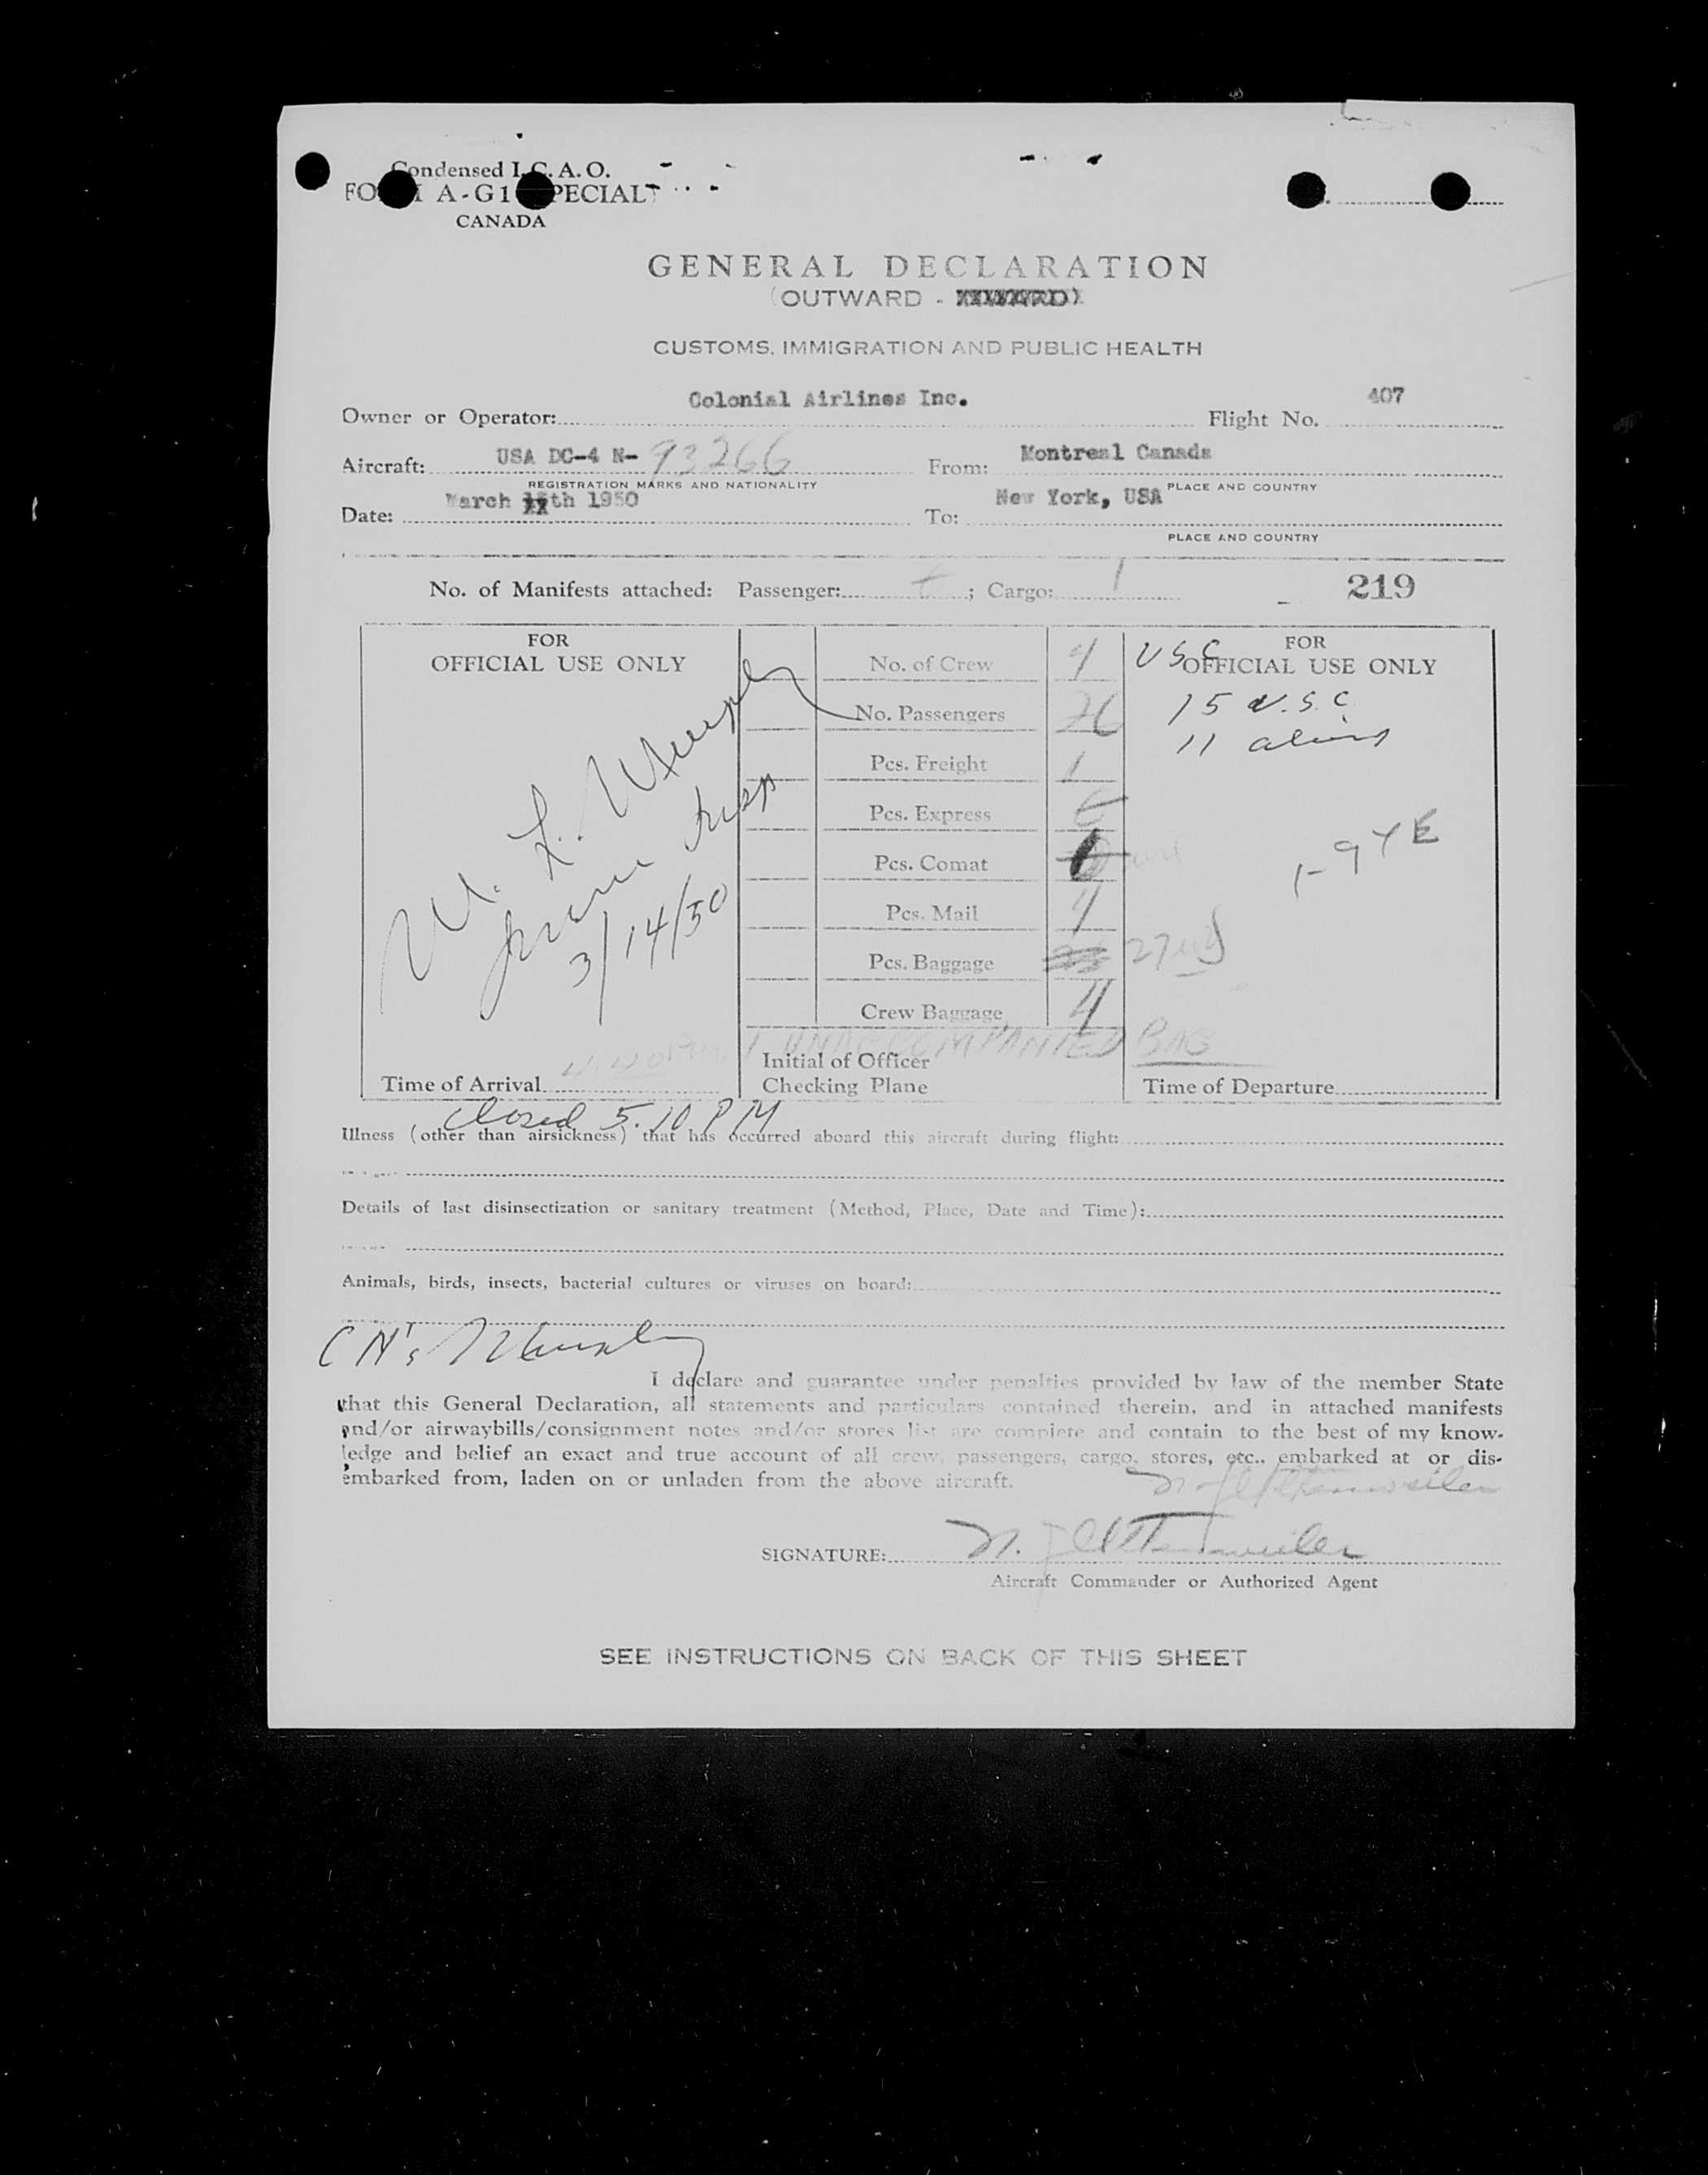 Condensed I.C.A.O.
FORM A-G1 SPECIAL
CANADA
GENERAL DECLARATION
(OUTWARD -
CUSTOMS, IMMIGRATION AND PUBLIC HEALTH
Owner or Operator: Colonial Airlines Inc. Flight No. 407
Aircraft: USA DC-4 N- 93266 From: Montreal Canada
REGISTRATION MARKS AND NATIONALITY PLACE AND COUNTRY
Date: March th 1950 To: New York, USA
PLACE AND COUNTRY
No. of Manifests attached: Passenger: ; Cargo: 1 219
FOR
OFFICIAL USE ONLY
3/14/50
Time of Arrival
No. of Crew 4
No. Passengers 26
Pcs. Freight 1
Pcs. Express
Pcs. Comat
Pcs. Mail 4
Pcs. Baggage 27
Crew Baggage 4
1 UNACCOMPANIED BAG
Initial of Officer
Checking Plane
FOR
OFFICIAL USE ONLY
USC
15 U.S.C.
11 aliens
Time of Departure
Closed 5.10 PM
Illness (other than airsickness) that has occurred aboard this aircraft during flight:
Details of last disinsectization or sanitary treatment (Method, Place, Date and Time):
Animals, birds, insects, bacterial cultures or viruses on board:
I declare and guarantee under penalties provided by law of the member State
that this General Declaration, all statements and particulars contained therein, and in attached manifests
and/or airwaybills/consignment notes and/or stores list are complete and contain to the best of my know-
ledge and belief an exact and true account of all crew, passengers, cargo, stores, etc., embarked at or dis-
embarked from, laden on or unladen from the above aircraft.
SIGNATURE:
Aircraft Commander or Authorized Agent
SEE INSTRUCTIONS ON BACK OF THIS SHEET